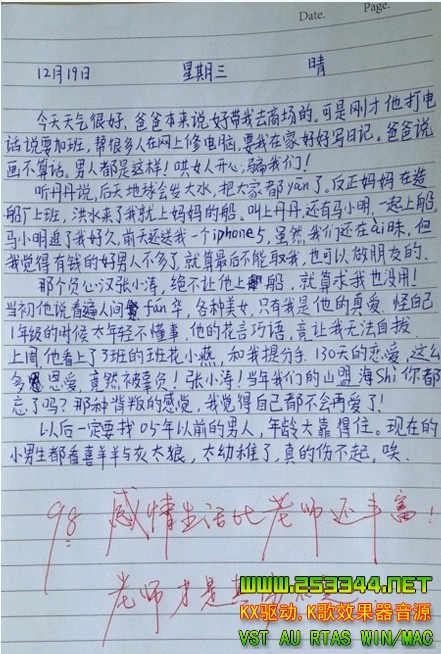 Date.
Page.
12月19日 星期三 晴
今天天气很好,爸爸本来说好带我去商场的。可是刚才他打电
话说要加班,帮很多人在网上修电脑,要我在家好好写日记。爸爸说
画不算话。男人都是这样!哄女人开心,骗我们!
听丹丹说,后天地球会发大水,把大家都yān了。反正妈妈在造
船厂上班,洪水来了我就上妈妈的船。叫上丹丹,还有马小明,一起上船。
马小明追了我好久,前天还送我一个iphone5,虽然我们还在ài昧,但
我觉得有钱的好男人不多了,就算最后不能取我,也可以做朋友的。
那个负心汉张小涛,绝不让他上船,就算求我也没用!
当初他说看遍人间fán华,各种美女,只有我是他的真爱。怪自己
1年级的时候太年轻不懂事。他的花言巧语,竟让我无法自拔。
上周他看上了3班的班花小燕,和我提分手。130天的恋爱,这么
多恩爱,竟然被辜负!张小涛!当年我们的山盟海Shi你都
忘了吗?那种背叛的感觉,我觉得自己都不会再爱了!
以后一定要找05年以前的男人,年龄大靠得住。现在的
小男生都看喜羊羊与灰太狼,太幼稚了,真的伤不起。唉
98 感情生活比老师还丰富!
老师才是
WWW.253344.NET
KX驱动,K歌效果器音源
VST AU RTAS WIN/MAC